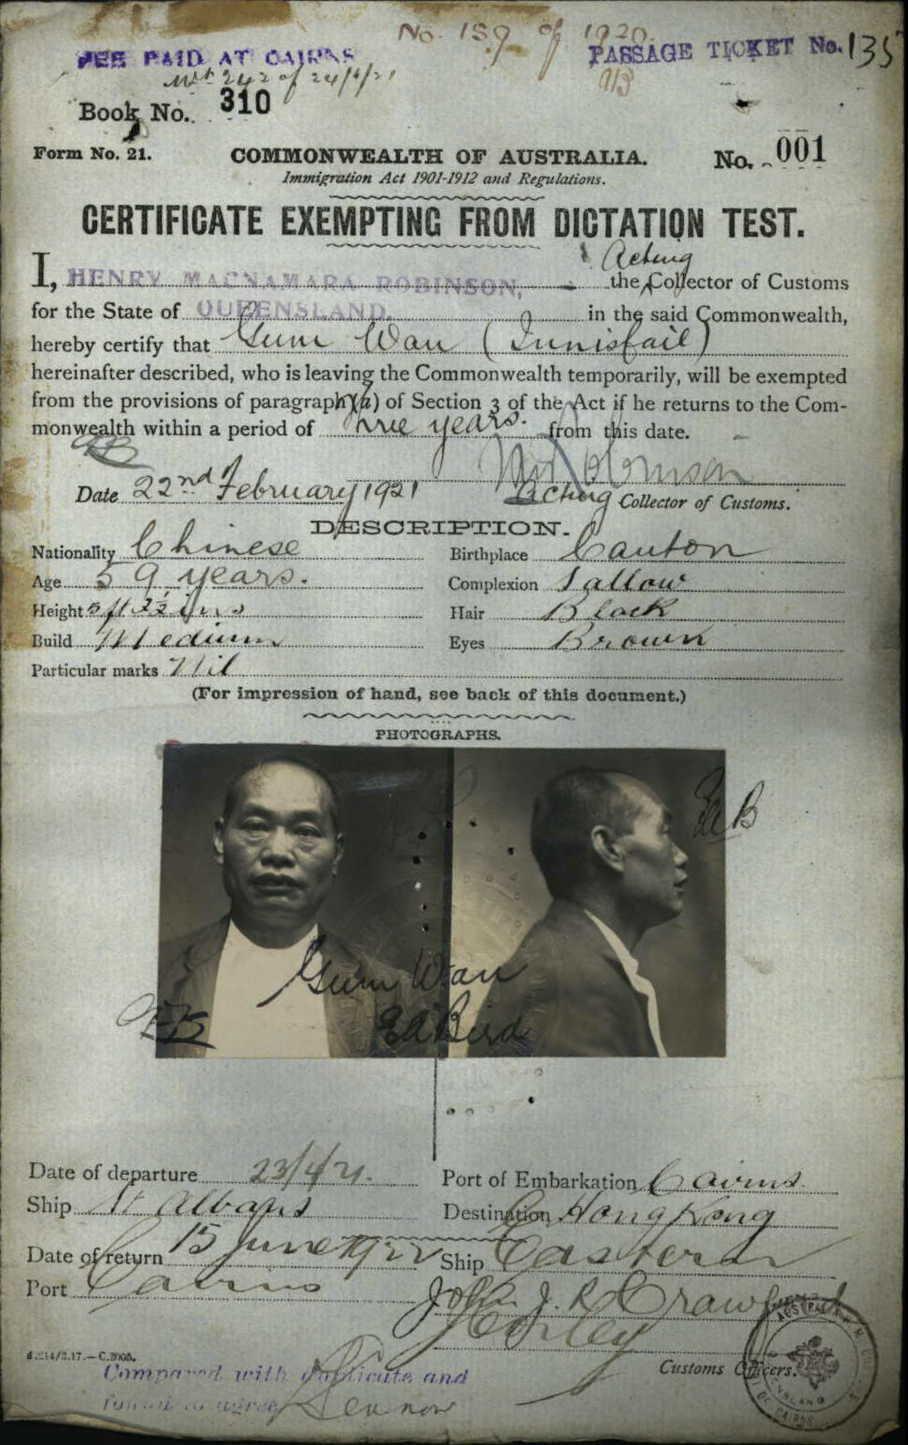 No. 159 of 1920.
FEE PAID AT CAIRNS
PASSAGE TICKET No. 135
242 of 24/4/21
Book No. 310
Form No. 21.
COMMONWEALTH OF AUSTRALIA.
No. 001
Immigration Act 1901-1912 and Regulations.
CERTIFICATE EXEMPTING FROM DICTATION TEST.
Acting
I, HENRY MACNAMARA ROBINSON, the Collector of Customs
for the State of QUEENSLAND. in the said Commonwealth,
hereby certify that Gum Wan (Innisfail)
hereinafter described, who is leaving the Commonwealth temporarily, will be exempted
from the provisions of paragraph (a) of Section 3 of the Act if he returns to the Com-
monwealth within a period of three years. from this date.
Robinson
Date 22nd February 1921 Acting Collector of Customs.
DESCRIPTION.
Nationality Chinese Birthplace Canton
Age 59 years. Complexion Sallow
Height 5ft 2½ ins Hair Black
Build Medium Eyes Brown
Particular marks Nil
(For impression of hand, see back of this document.)
PHOTOGRAPHS.
EdB
Gum Wan
Ed Bird
Date of departure 23/4/21. Port of Embarkation Cairns.
Ship St Albans Destination Hong Kong
Date of return 15 June 1922 Ship Eastern
Port Cairns John J. R. Crawford
Customs Officers.
Compared with duplicate and
found to agree